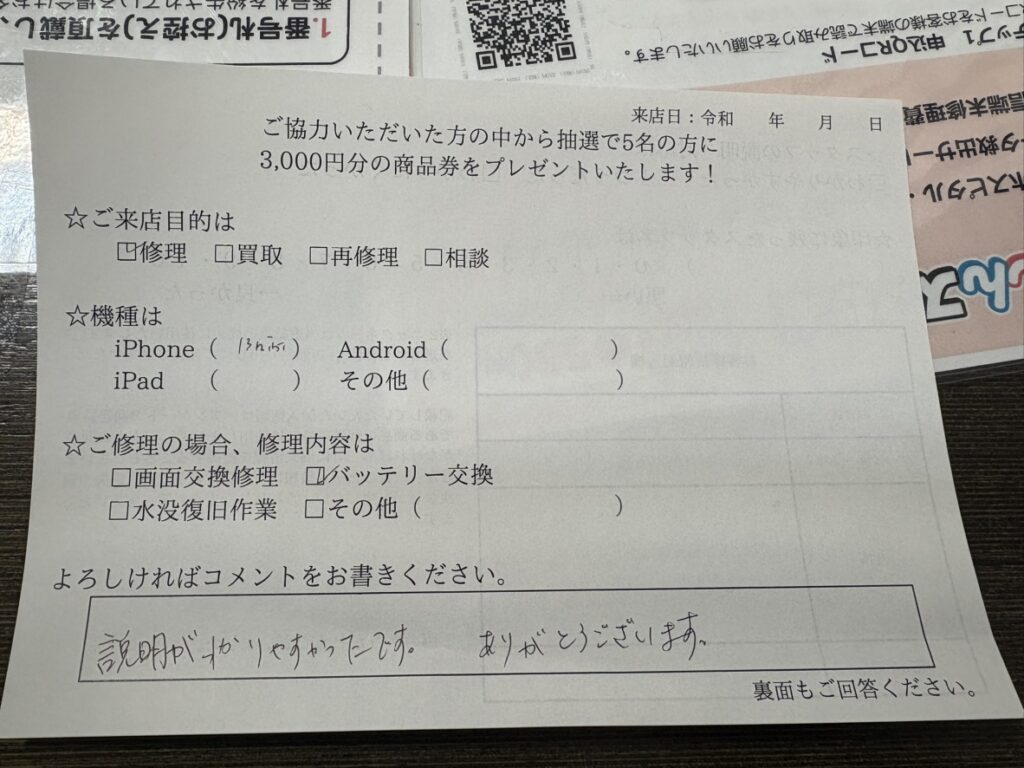 1.番号札(お控え)を頂戴し、
テップ1 申込QRコード
コードをお客様の端末で読み取りをお願いいたします。
来店日：令和　年　月　日
ご協力いただいた方の中から抽選で5名の方に
3,000円分の商品券をプレゼントいたします！
☆ご来店目的は
☐修理 ☐買取 ☐再修理 ☐相談
☆機種は
iPhone（ 13mini ） Android（ ）
iPad （ ） その他（ ）
☆ご修理の場合、修理内容は
☐画面交換修理 ☑バッテリー交換
☐水没復旧作業 ☐その他（ ）
よろしければコメントをお書きください。
説明がわかりやすかったです。 ありがとうございます。
裏面もご回答ください。